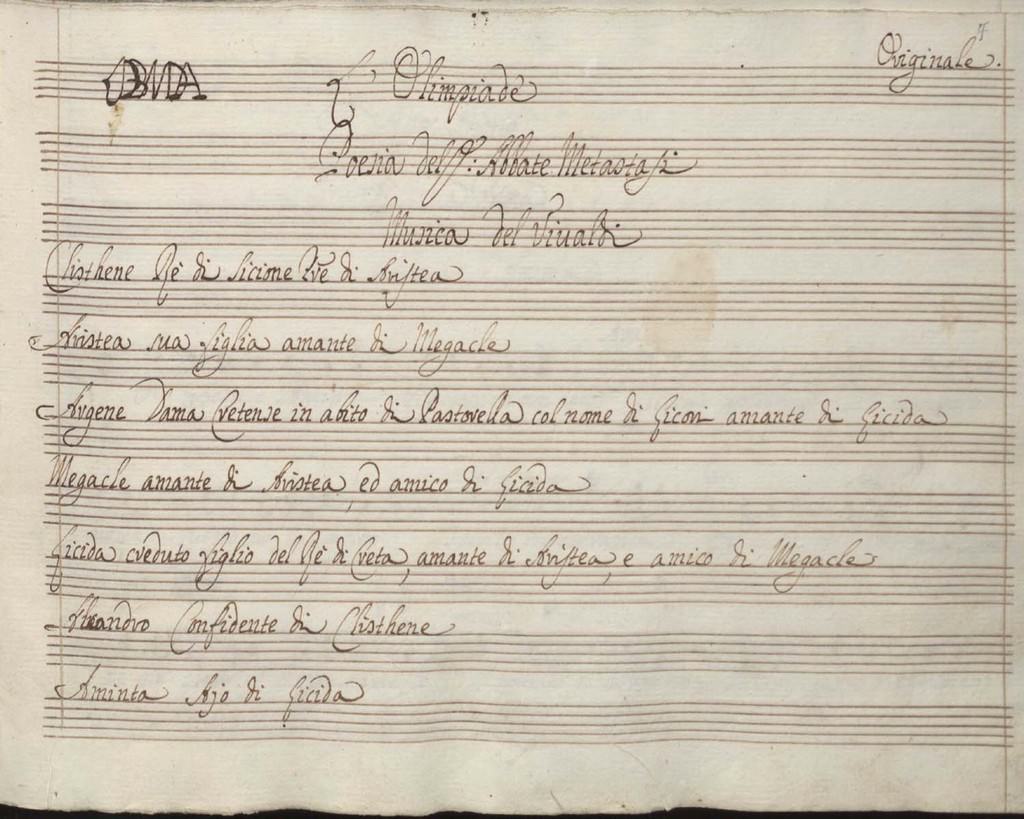 Originale.
L'Olimpiade
Poesia del Sr. Abbate Metastasi
Musica del Vivaldi
Clisthene Rè di Sicione Pre di Aristea
Aristea sua figlia amante di Megacle
Argene Dama Cretense in abito di Pastorella col nome di Licori amante di Licida
Megacle amante di Aristea, ed amico di Licida
Licida creduto figlio del Rè di Creta, amante di Aristea, e amico di Megacle
Confidente di Clisthene
Aminta Ajo di Licida